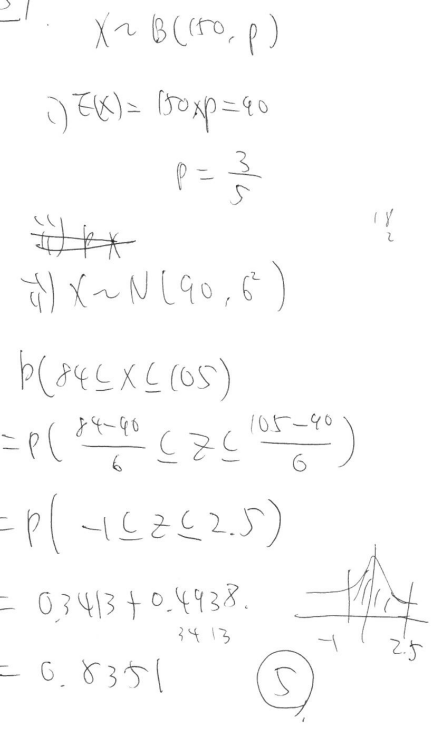 X ~ B(150, p)
i) E(X) = 150xp = 90
p = 3/5
18
2
ii) X ~ N(90, 6²)
p(84 ≤ X ≤ 105)
= P( (84-90)/6 ≤ Z ≤ (105-90)/6 )
= p( -1 ≤ Z ≤ 2.5)
= 0.3413 + 0.4938.
3413
-1 2.5
= 0.8351
5